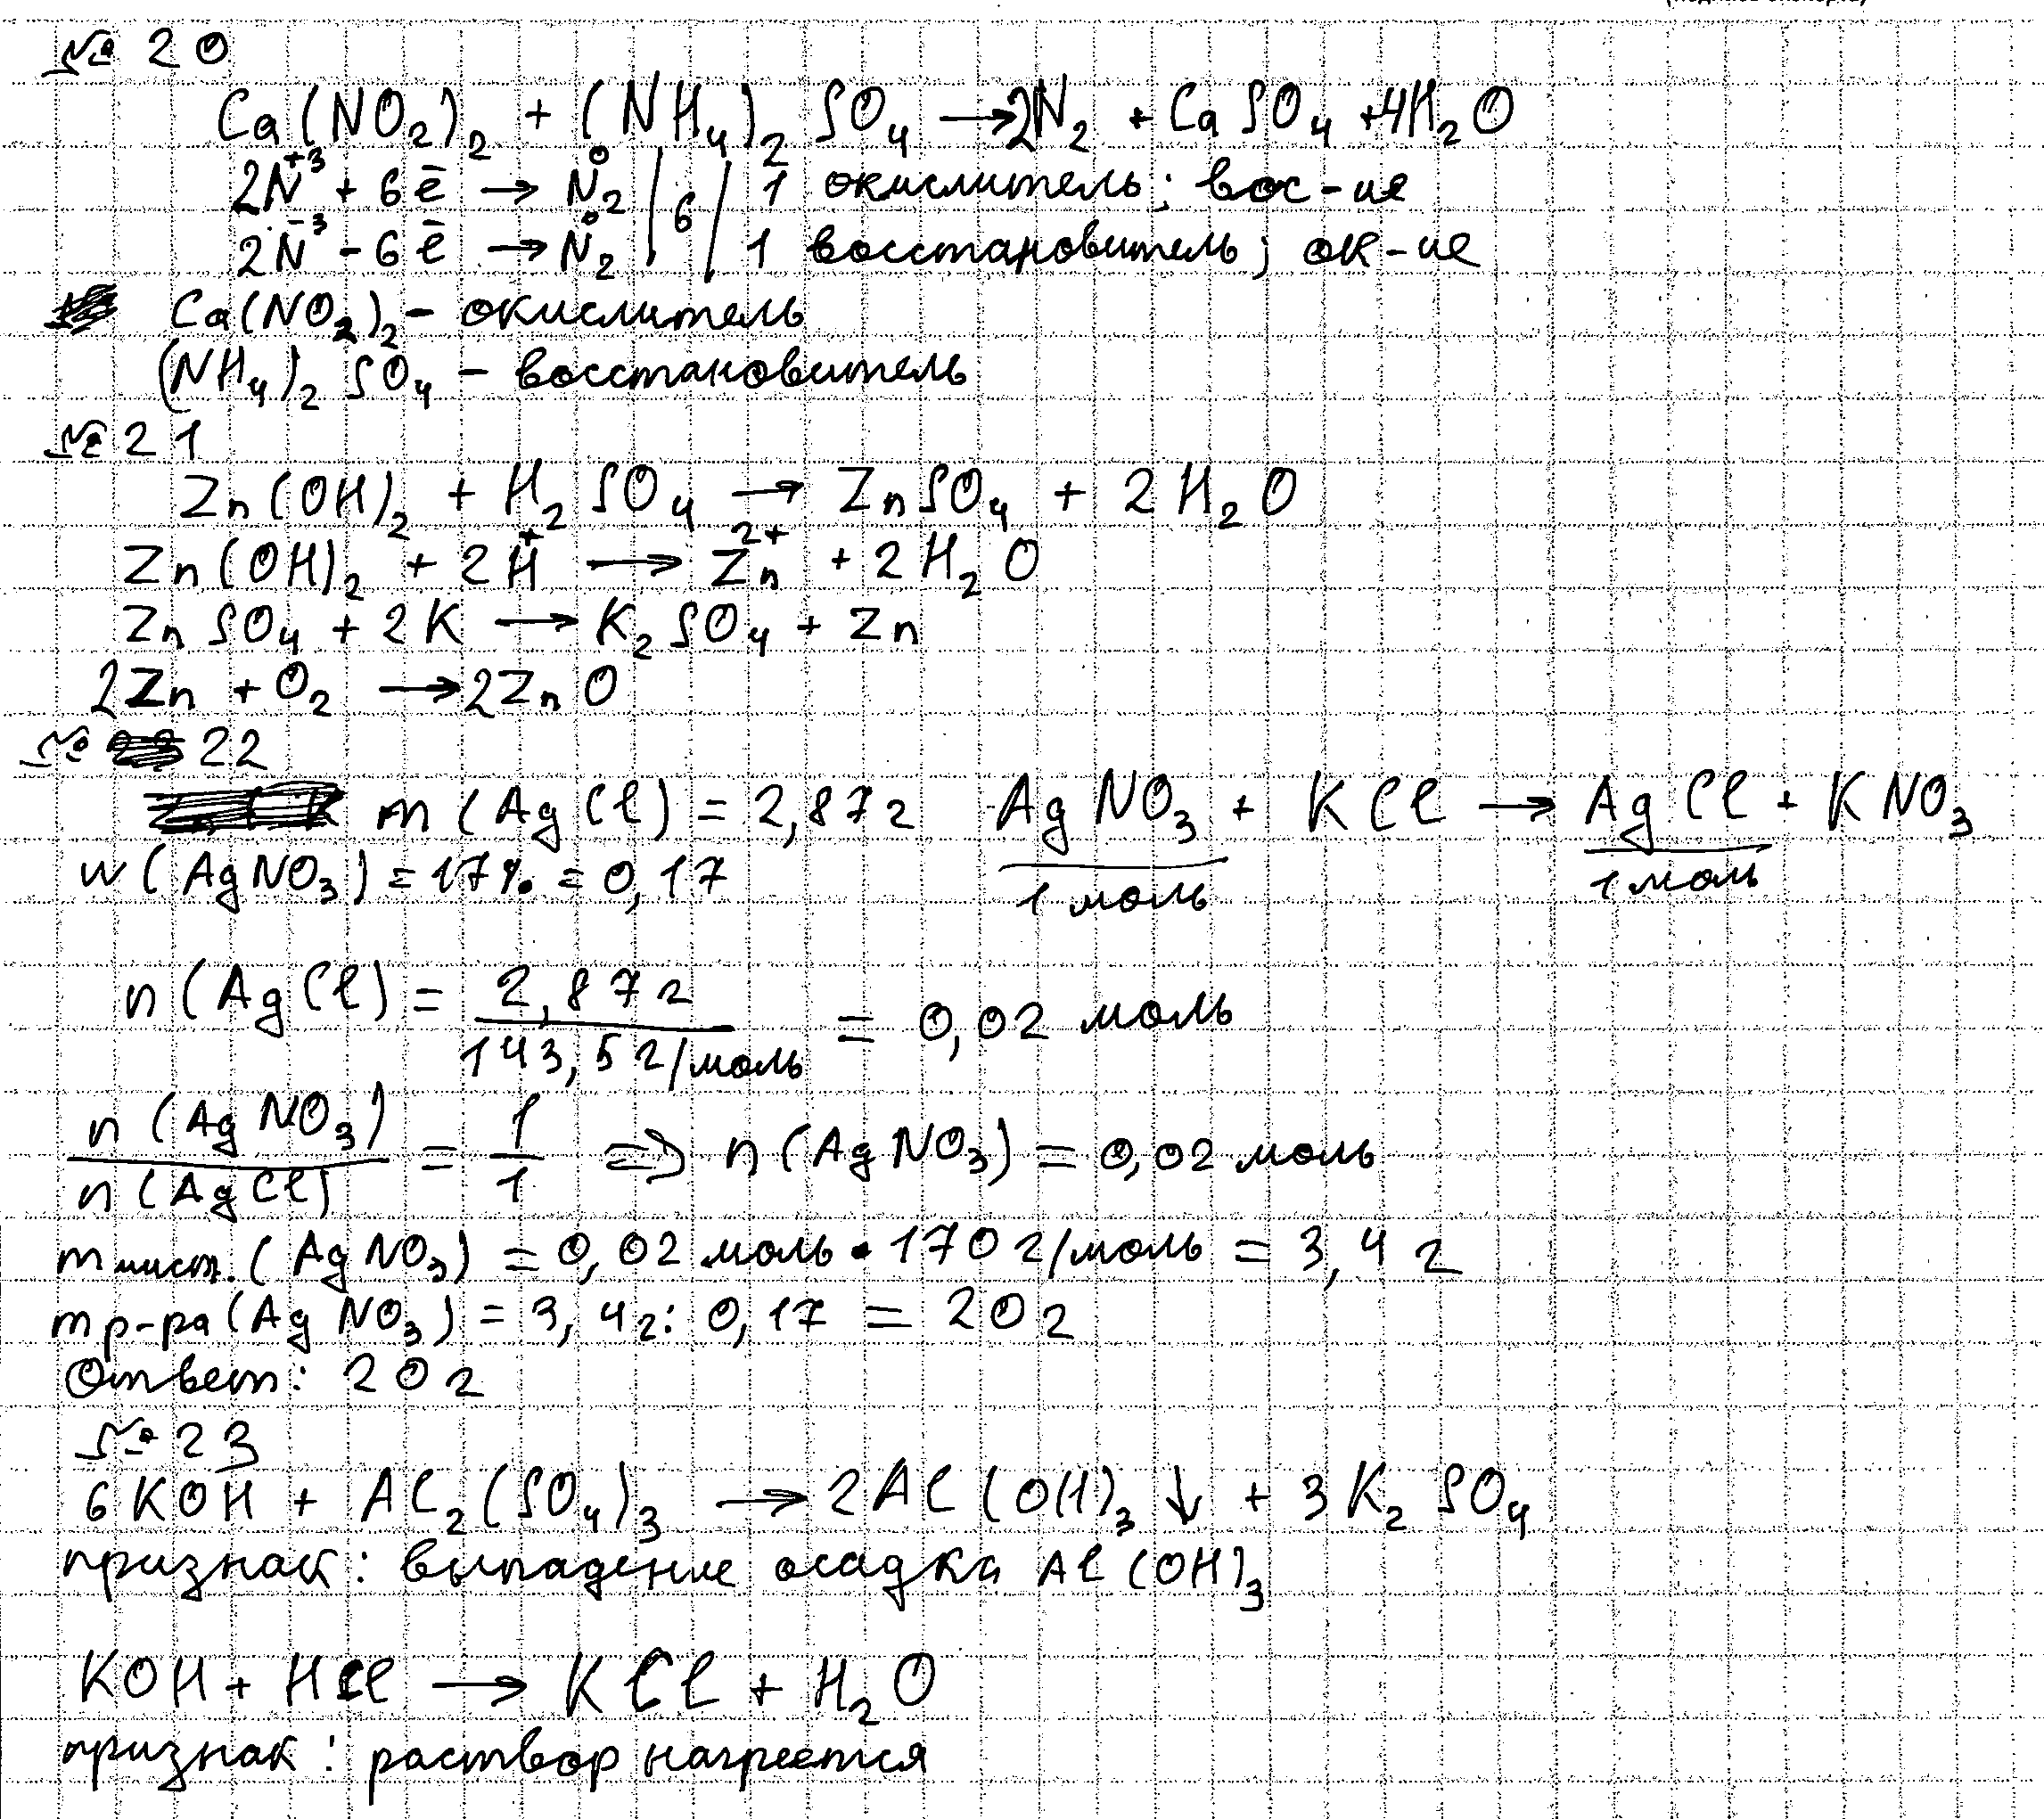 № 20
Ca(NO₂)₂ + (NH₄)₂SO₄ → 2N₂ + CaSO₄ + 4H₂O
2N⁺³ + 6ē → N₂⁰ | 6 | 1 окислитель; вос-ие
2N⁻³ - 6ē → N₂⁰ | | 1 восстановитель; ок-ие
Ca(NO₂)₂ - окислитель
(NH₄)₂SO₄ - восстановитель
№ 21
Zn(OH)₂ + H₂SO₄ → ZnSO₄ + 2H₂O
Zn(OH)₂ + 2H⁺ → Zn²⁺ + 2H₂O
ZnSO₄ + 2K → K₂SO₄ + Zn
2Zn + O₂ → 2ZnO
№ 22
m(AgCl) = 2,87г AgNO₃ + KCl → AgCl + KNO₃
w(AgNO₃) = 17% = 0,17 1 моль 1 моль
n(AgCl) = 2,87г / 143,5г/моль = 0,02 моль
n(AgNO₃) / n(AgCl) = 1/1 ⇒ n(AgNO₃) = 0,02 моль
m чист.(AgNO₃) = 0,02 моль · 170г/моль = 3,4г
m р-ра(AgNO₃) = 3,4г : 0,17 = 20г
Ответ: 20г
№ 23
6KOH + Al₂(SO₄)₃ → 2Al(OH)₃↓ + 3K₂SO₄
признак: выпадение осадка Al(OH)₃
KOH + HCl → KCl + H₂O
признак: раствор нагреется